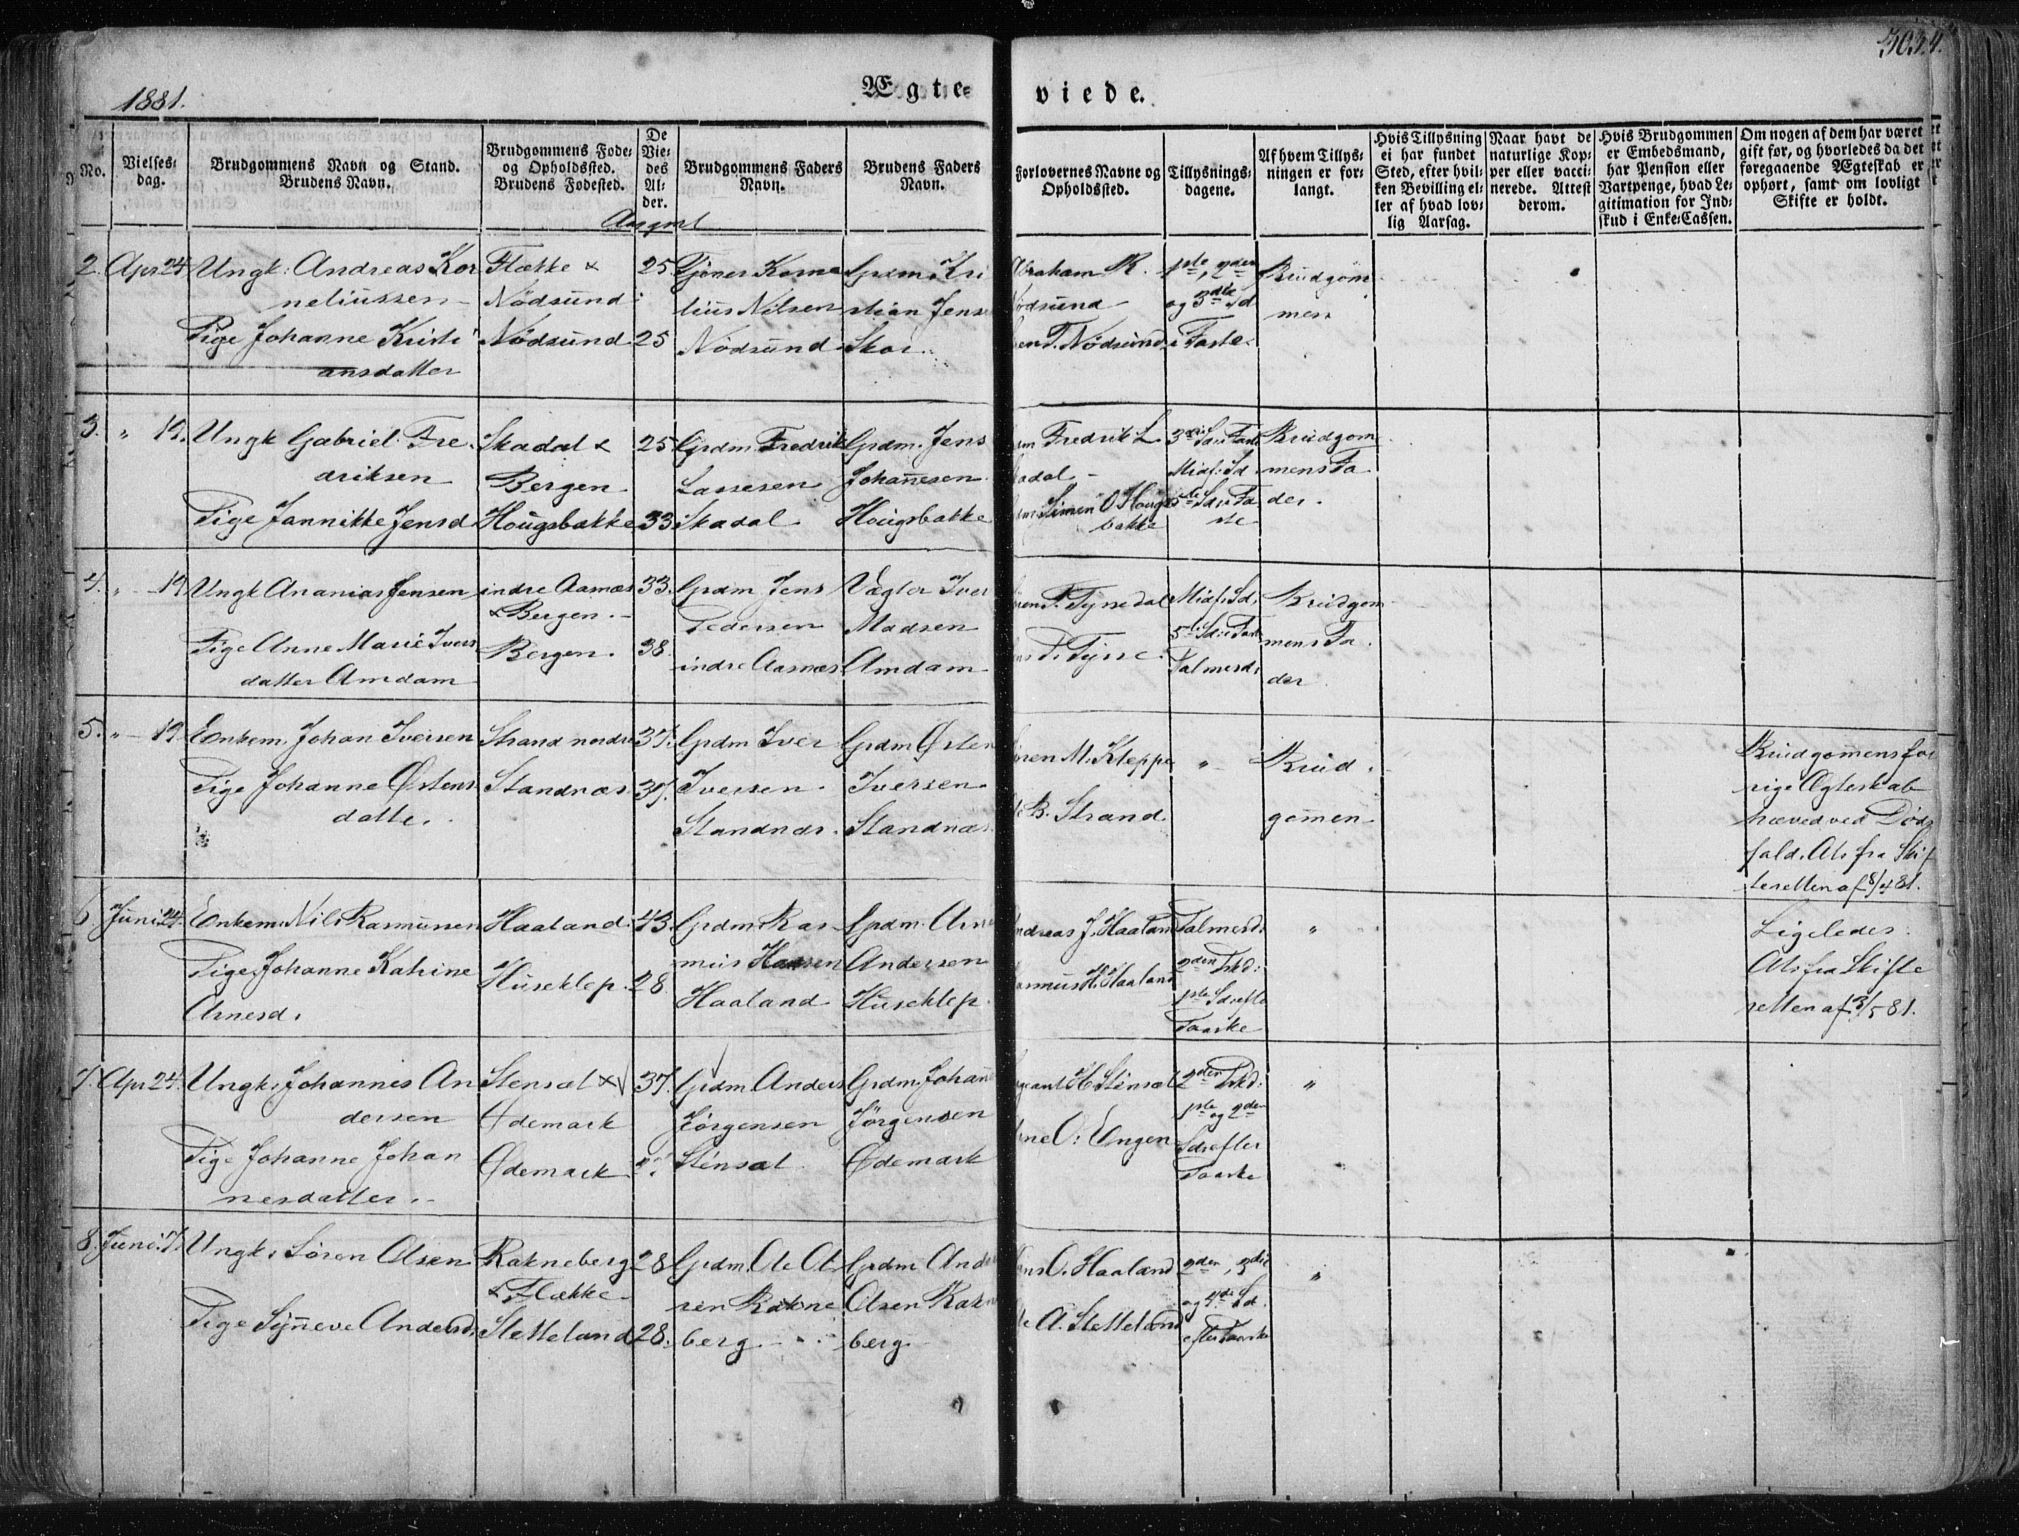 1881.
Ægte-
viede.
No.
Vielses-
dag.
Brudgommens Navn og Stand.
Brudens Navn.
Brudgommens Føde-
og Opholdssted.
Brudens Fødested.
De
Vie-
des
Al-
der.
Brudgommens Faders
Navn.
Brudens Faders
Navn.
Forlovernes Navne og
Opholdssted.
Tillysnings-
dagene.
Af hvem Tillys-
ningen er for-
langt.
Hvis Tillysning
ei har fundet
Sted, efter hvil-
ken Bevilling el-
ler af hvad lov-
lig Aarsag.
Naar havt de
naturlige Kop-
per eller vacci-
nerede. Attest
derom.
Hvis Brudgommen
er Embedsmand,
har Pension eller
Vartpenge, hvad Le-
gitimation for Ind-
skud i Enke-Cassen.
Om nogen af dem har været
gift før, og hvorledes da det
foregaaende Ægteskab er
ophørt, samt om lovligt
Skifte er holdt.
2. Apr 24. Ungk: Andreas Kor
neliussen
Pige Johanne Kristi
ansdatter
Flække &
Nødsund
Nødsund
25
25
Kornе
lius Nilsen
Nødsund
Grdm. Kri
stian Jens
Skor.
Abraham R.
Nødsund
T. Nødsund
1ste, 2den
og 3die Sd
i Faste.
Brudgom
men
3. " 19. Ungk Gabriel Fre
driksen
Pige Jannikke Jensd
Skadal &
Bergen
Hougsbakke
25
33
Grdm Fredrik
Lassesen
Skadal
Grdm. Jens
Johannesen
Hougsbakke
Fredrik L
adal
Simen O Hougs
bakke
3die Sd i Faste
Midf. Sd
5te Sd i Fa
ste
Brudgom
mens Fa
der.
4. " 19 Ungk Ananias Jensen
Pige Anne Marie Ivers
datter Amdam
indre Aasnæs
& Bergen
Bergen.
33.
38.
Grdm Jens
Pedersen
indre Aasnæs
Vægter Iver
Madsen
Amdam
P. Tyssedal
Tysse.
Midf. Sd.
5te Sd i Faste
Palmesd.
Brudgom
mens Fa
der
5. " 19 Enkem. Johan Iversen
Pige Johanne Østens
datte.
Strand nordre
Standnæs
37.
Grdm Iver
Iversen
Standnæs.
Grdm Østen
Iversen
Standnæs.
M. Kleppe
B. Strand
"
Brud
gommen
Brudgommens for
rige Ægteskab
hæved ved Døds
fald. At. fra Skif
teretten af 8/4 81.
6. Juni 24. Enkem. Nils Rasmussen
Pige Johanne Katrine
Arnesd.
Haaland.
Huseklep.
43.
28.
Grdm Ras
mus Hansen
Haaland
Grdm. Arne
Andersen
Huseklep
ndreas J. Haaland
asmus H. Haaland
Palmesd.
2den Pskd:
1ste Sd efte
Paaske
"
Ligeledes.
At. fra Skifte
retten af 3/5 81.
7. Apr 24. Ungk. Johannes An
dersen
Pige Johanne Johan
nesdatter.
Stensæt &
Ødemark
Ødemark
37.
Grdm. Anders
Jørgensen
Stensæt
Grdm. Johan
Jørgensen
Ødemark
H Stensæt
O: Engen
2den Pskd:
1ste og 2den
Sd efter
Paaske
"
8. Juni 7. Ungk. Søren Olsen
Pige Synneve Andersd.
Rakneberg
& Flække
Stetteland
28
28.
Grdm. Ole Ol
sen Rakne
berg
Grdm. Ande
Olsen Rakn
berg
O. Haaland
A. Stetteland
2den, 3die
og 4de Sd.
efter Paaske
"